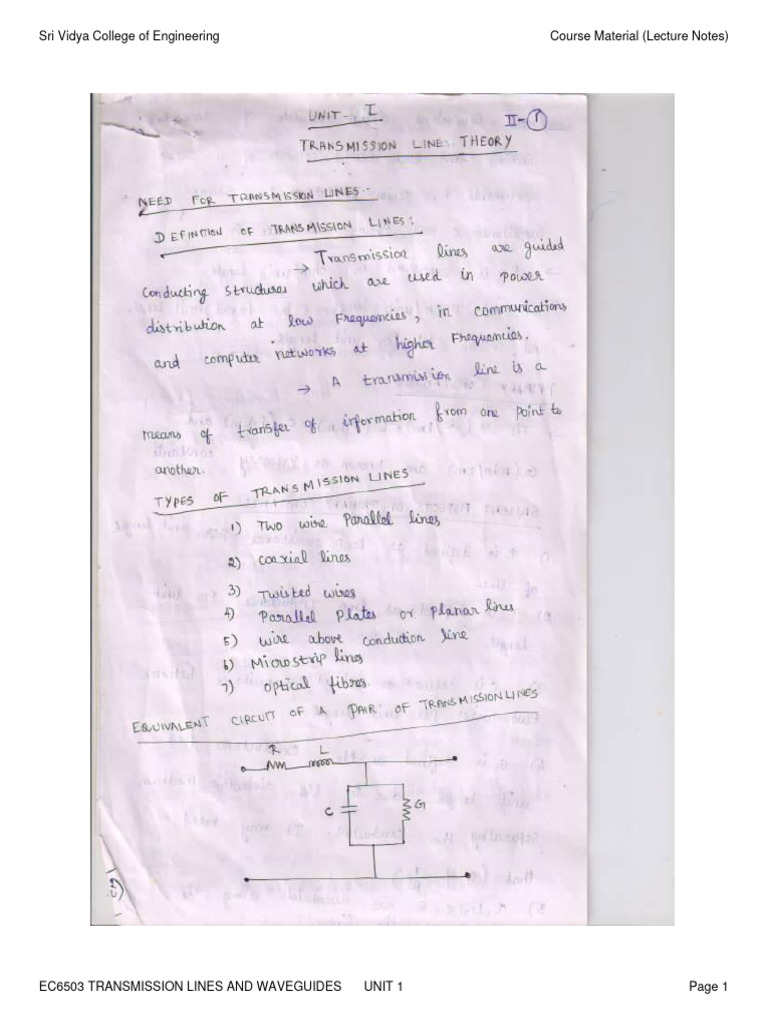 Sri Vidya College of Engineering Course Material (Lecture Notes)
UNIT- I
II-1
TRANSMISSION LINE THEORY
NEED FOR TRANSMISSION LINES:-
DEFINITION OF TRANSMISSION LINES:
→ Transmission lines are guided
conducting structures which are used in power
distribution at low Frequencies, in communications
and computer networks at higher Frequencies.
→ A transmission line is a
means of transfer of information from one point to
another.
TYPES OF TRANSMISSION LINES
1) Two wire Parallel lines
2) coaxial lines
3) Twisted wires
4) Parallel Plates or planar lines
5) wire above conduction line
6) Microstrip lines
7) optical fibres.
EQUIVALENT CIRCUIT OF A PAIR OF TRANSMISSION LINES
R L
C G
EC6503 TRANSMISSION LINES AND WAVEGUIDES UNIT 1 Page 1